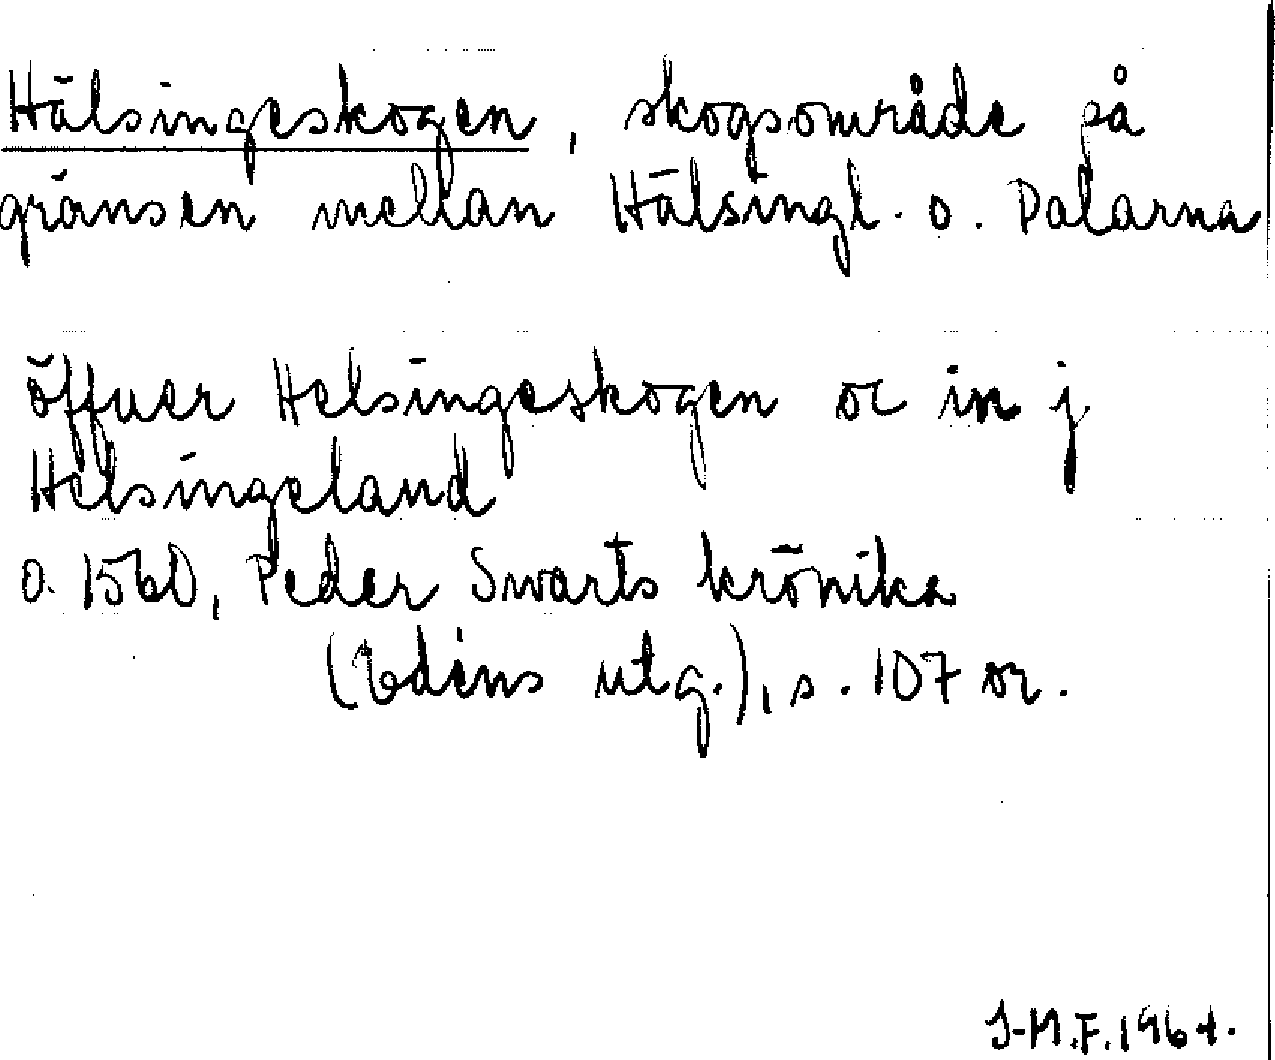 Hälsingeskogen, skogsområde på
gränsen mellan Hälsingl. o. Dalarna
öffuer Helsingeskogen oc in j
Helsingeland
o. 1560, Peder Swarts krönika
(Edéns utg.), s. 107 or.
J-M.F. 1964.